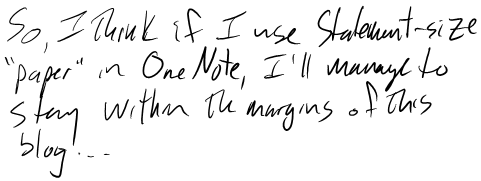 So, I think if I use Statement-size
"paper" in OneNote, I'll manage to
stay within the margins of this
blog...